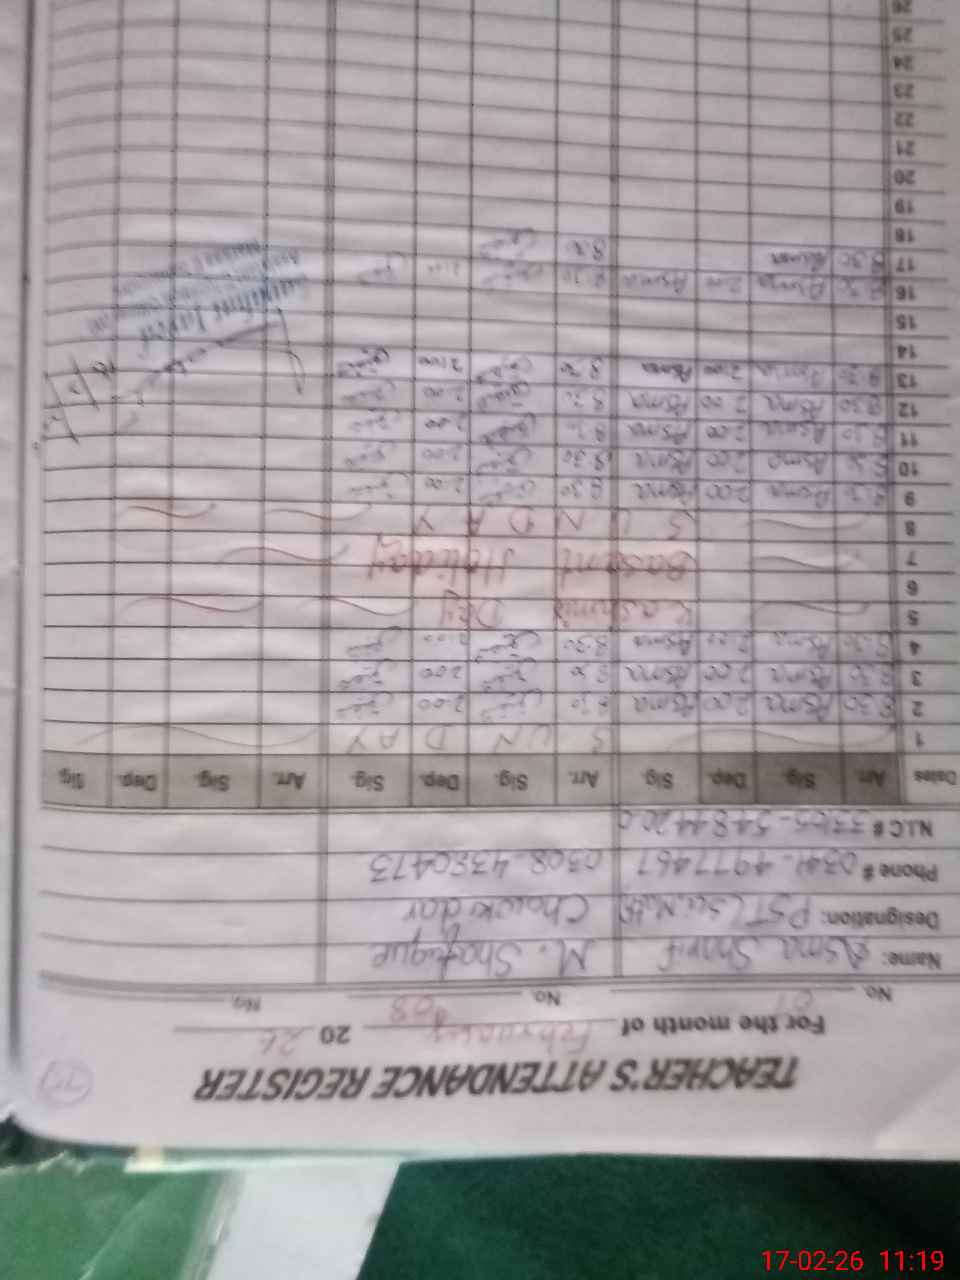 TEACHER'S ATTENDANCE REGISTER
For the month of February 20 26
No. 01 No. 08 No.
Name: Asma Sharif M. Shafique
Designation: PST (Sci.Math) Chowkidar
Phone # 0341-4977467 0308-4380473
N.I.C #
Dates Arr. Sig. Dep. Sig. Arr. Sig. Dep. Sig. Arr. Sig. Dep. Sig.
1 SUNDAY
2 8.30 Asma 2.00 Asma 8.30 2.00
3 8.30 Asma 2.00 Asma 8.30 2.00
4 8.30 Asma 2.00 Asma 8.30 2.00
5 Kashmir Day
6
7 Basant Holiday
8 SUNDAY
9 8.30 Asma 2.00 Asma 8.30 2.00
10 8.30 Asma 2.00 Asma 8.30 2.00
11 8.30 Asma 2.00 Asma 8.30 2.00
12 8.30 Asma 2.00 Asma 8.30 2.00
13 8.30 Asma 2.00 Asma 8.30 2.00
14
15
16 8.30 Asma 2.00 Asma 8.30 2.00
17 8.30 Asma 8.30
18
19
20
21
22
23
24
25
26
17-02-26 11:19